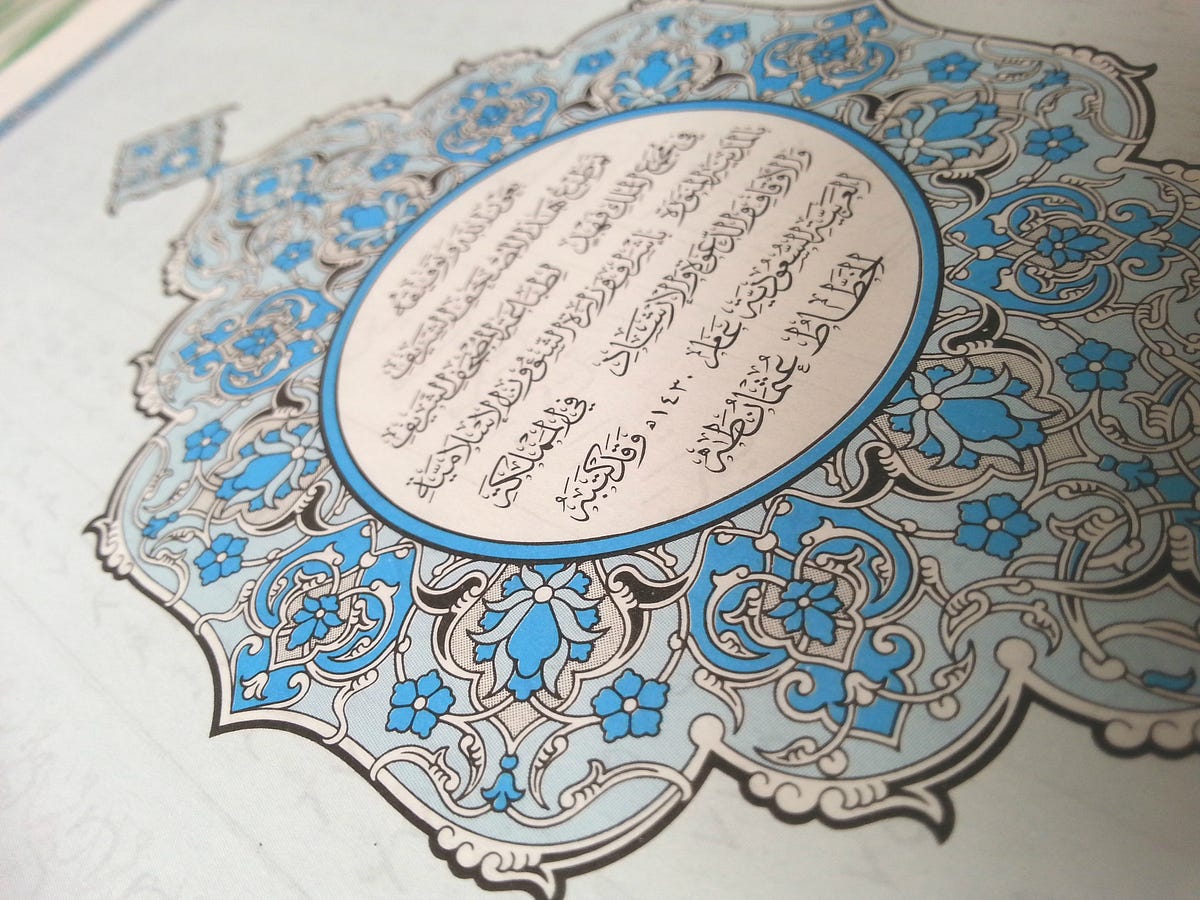 بعون الله وتوفيقه
تم طبع هذا المصحف الشريف
في مجمع الملك فهد لطباعة المصحف الشريف
بالمدينة المنورة بإشراف وزارة الشؤون الإسلامية
والأوقاف والدعوة والإرشاد في المملكة
العربية السعودية عام ١٤٣٠ه وقد كتبه
الخطاط عُثمان طه